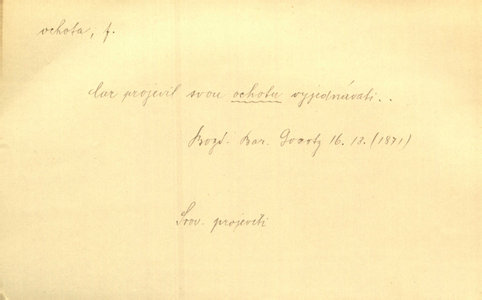 ochota, f.
Car projevil svou ochotu vyjednávati..
Bozd. Bar. Goertz 16. 13. (1871)
Srov. projeviti